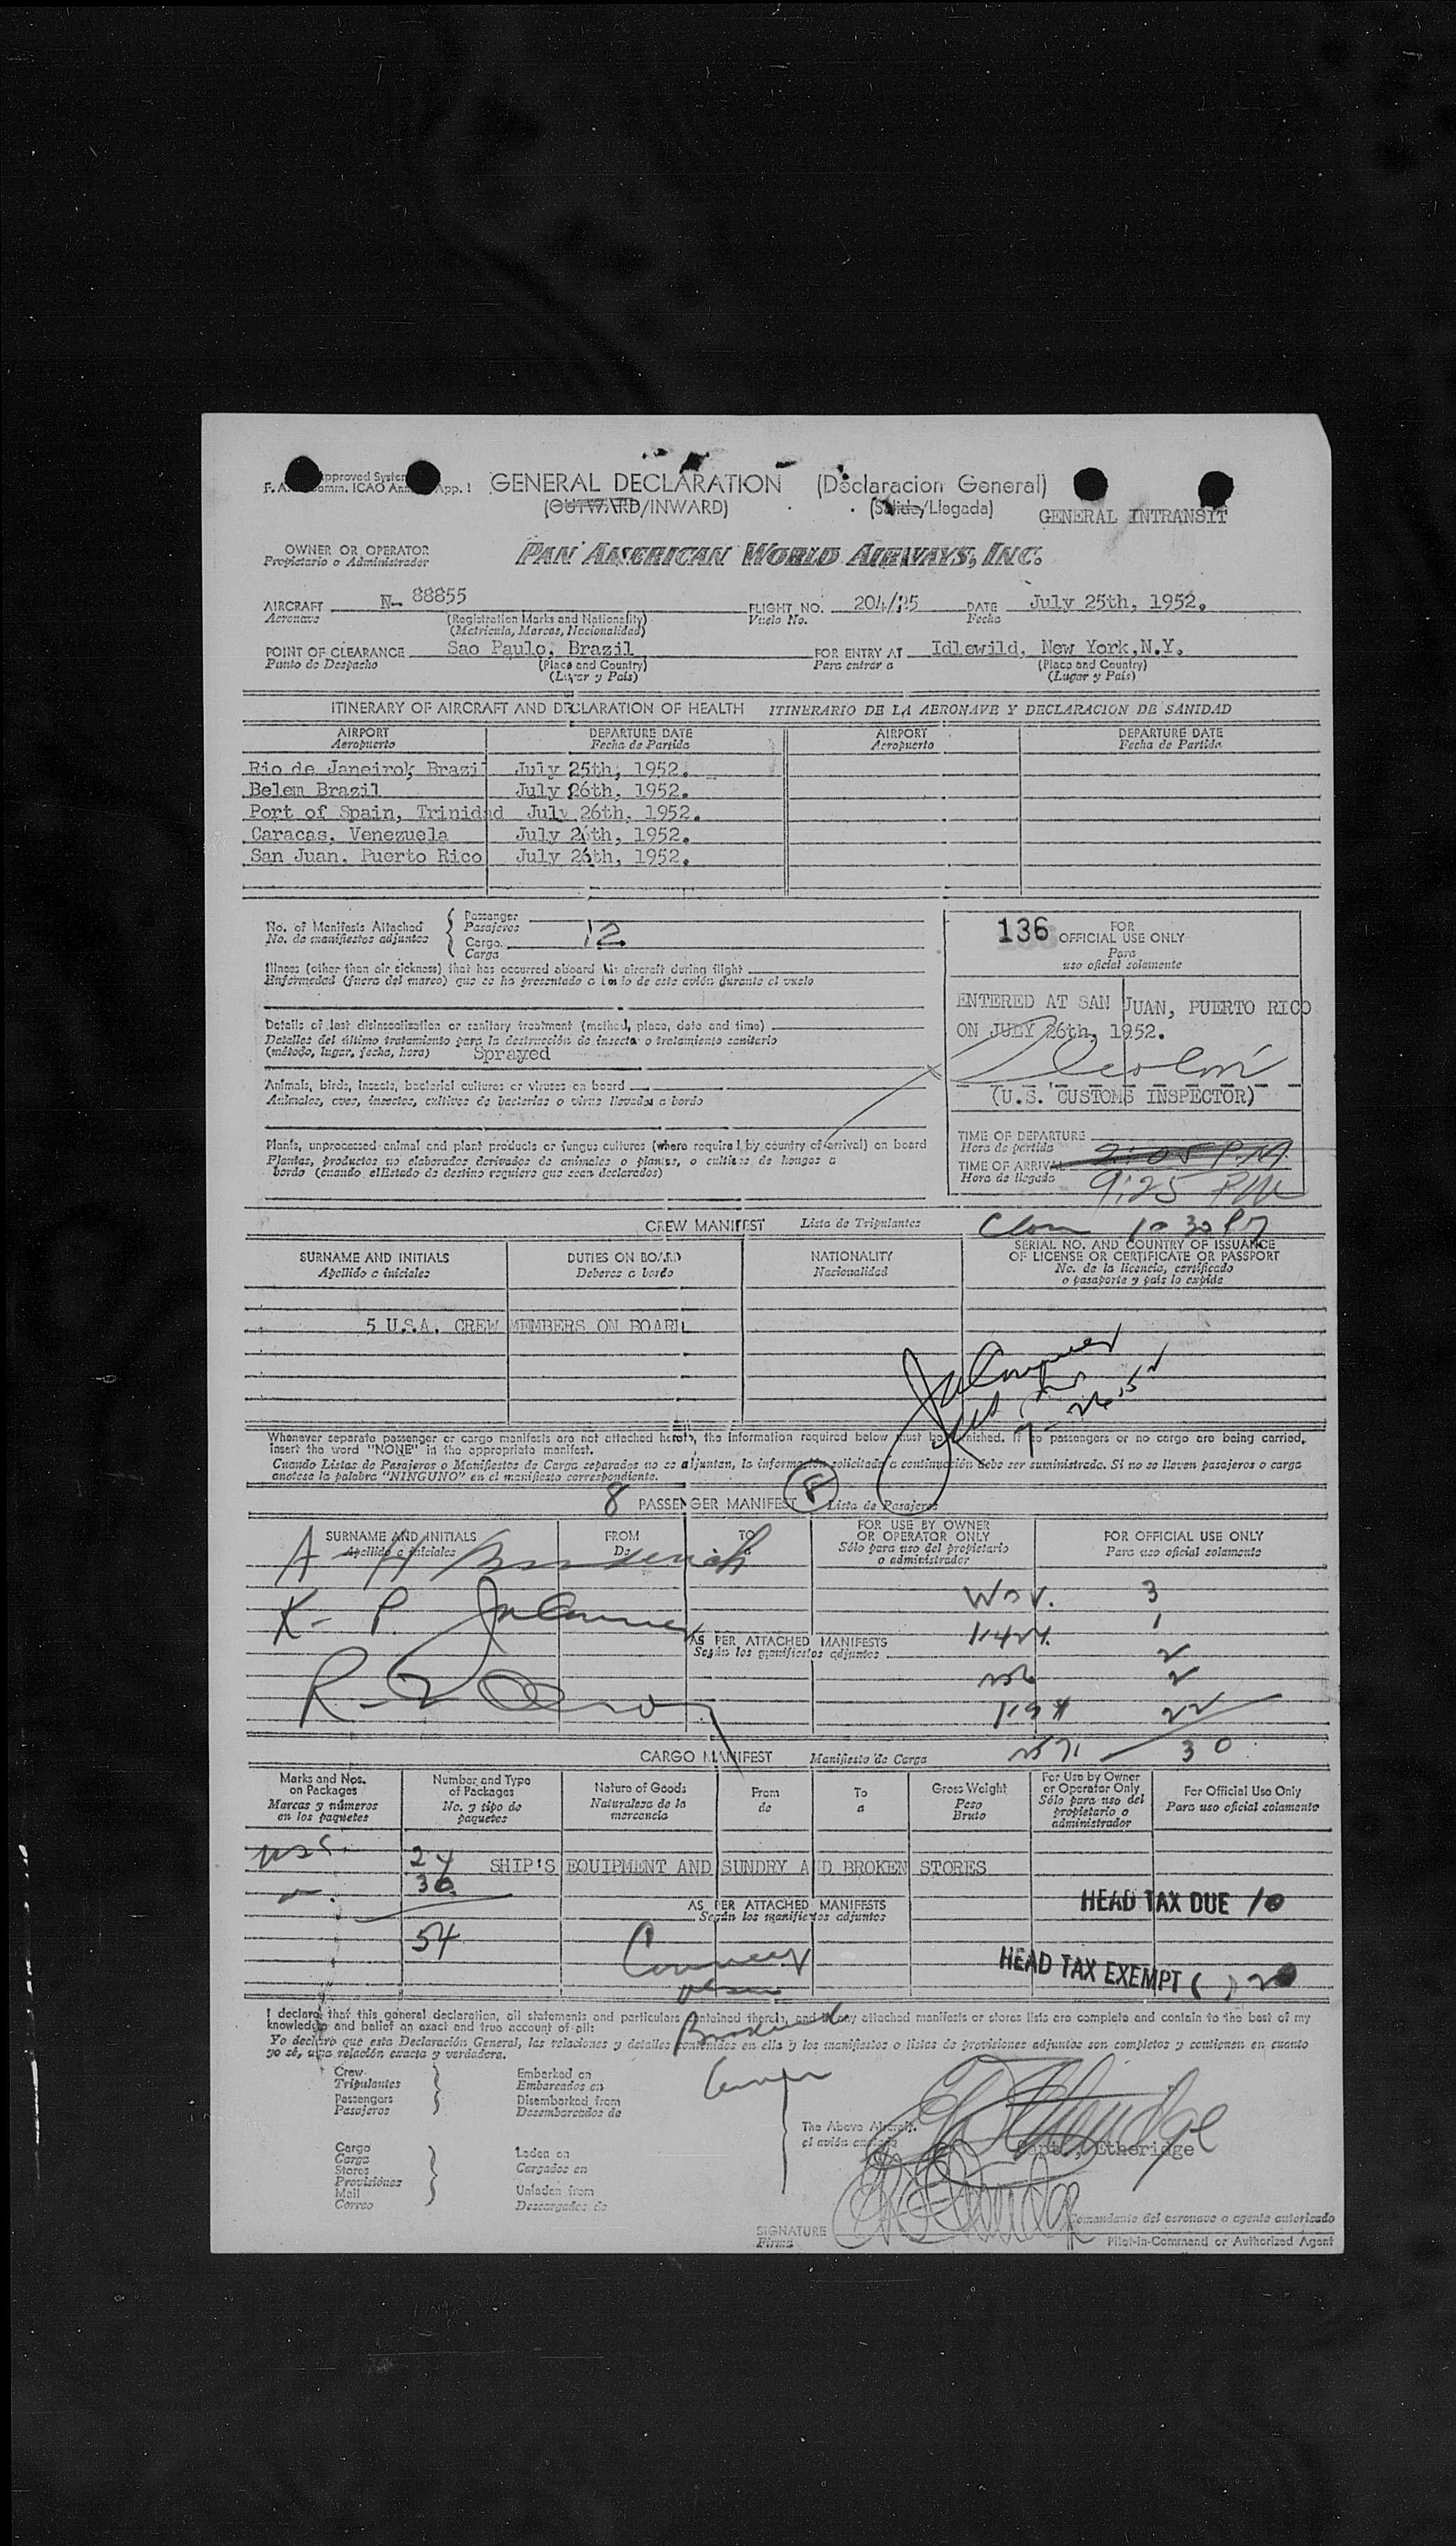 GENERAL DECLARATION (Declaracion General)
(OUTWARD/INWARD) (Salida/Llegada)
GENERAL INTRANSIT
OWNER OR OPERATOR
Propietario o Administrador
PAN AMERICAN WORLD AIRWAYS, INC.
AIRCRAFT N- 88855 FLIGHT NO. 204/25 DATE July 25th, 1952.
Aeronave (Registration Marks and Nationality) Vuelo No. Fecha
(Matricula, Marcas, Nacionalidad)
POINT OF CLEARANCE Sao Paulo, Brazil FOR ENTRY AT Idlewild, New York,N.Y.
Punto de Despacho (Place and Country) Para entrar a (Place and Country)
(Lugar y País) (Lugar y País)
ITINERARY OF AIRCRAFT AND DECLARATION OF HEALTH ITINERARIO DE LA AERONAVE Y DECLARACION DE SANIDAD
AIRPORT DEPARTURE DATE AIRPORT DEPARTURE DATE
Aeropuerto Fecha de Partida Aeropuerto Fecha de Partida
Rio de Janeiro, Brazil July 25th, 1952.
Belem Brazil July 26th, 1952.
Port of Spain, Trinidad July 26th, 1952.
Caracas, Venezuela July 26th, 1952.
San Juan, Puerto Rico July 26th, 1952.
No. of Manifests Attached Passenger
No. de manifiestos adjuntos Pasajeros
Cargo 12
Carga
Illness (other than air sickness) that has occurred aboard his aircraft during flight
Enfermedad (fuera del mareo) que se ha presentado a bordo de este avión durante el vuelo
Details of last disinsectization or sanitary treatment (method, place, date and time)
Detalles del último tratamiento para la destrucción de insecto o tratamiento sanitario
(método, lugar, fecha, hora) Sprayed
Animals, birds, insects, bacterial cultures or viruses on board
Animales, aves, insectos, cultivos de bacterias o virus llevados a bordo
Plants, unprocessed animal and plant products or fungus cultures (where required by country of arrival) on board
Plantas, productos no elaborados derivados de animales o plantas, o cultivos de hongos a
bordo (cuando elEstado de destino requiere que sean declarados)
136 FOR
OFFICIAL USE ONLY
Para
uso oficial solamente
ENTERED AT SAN JUAN, PUERTO RICO
ON JULY 26th, 1952.
(U.S. CUSTOMS INSPECTOR)
TIME OF DEPARTURE 2:05 P.M.
Hora de partida
TIME OF ARRIVAL
Hora de llegada 9:25 PM
CREW MANIFEST Lista de Tripulantes
SURNAME AND INITIALS DUTIES ON BOARD NATIONALITY SERIAL NO. AND COUNTRY OF ISSUANCE
OF LICENSE OR CERTIFICATE OR PASSPORT
Apellido e iniciales Deberes a bordo Nacionalidad No. de la licencia, certificado
o pasaporte y país lo expide
5 U.S.A. CREW MEMBERS ON BOARD
7-26-52
Whenever separate passenger or cargo manifests are not attached hereto, the information required below must be furnished. If no passengers or no cargo are being carried,
insert the word "NONE" in the appropriate manifest.
Cuando Listas de Pasajeros o Manifiestos de Carga separados no se adjuntan, la información solicitada a continuación debe ser suministrada. Si no se lleven pasajeros o carga
anotese la palabra "NINGUNO" en el manifiesto correspondiente.
8 PASSENGER MANIFEST 8 Lista de Pasajeros
SURNAME AND INITIALS FROM TO FOR USE BY OWNER
OR OPERATOR ONLY FOR OFFICIAL USE ONLY
Apellido e iniciales De a Sólo para uso del propietario
o administrador Para uso oficial solamente
3
1
AS PER ATTACHED MANIFESTS
Según los manifiestos adjuntos
2
2
22
30
CARGO MANIFEST Manifiesto de Carga
Marks and Nos.
on Packages Number and Type
of Packages Nature of Goods From To Gross Weight For Use by Owner
or Operator Only For Official Use Only
Marcas y números
en los paquetes No. y tipo de
paquetes Naturaleza de la
mercancia de a Peso
Bruto Sólo para uso del
propietario o
administrador Para uso oficial solamente
24 SHIP'S EQUIPMENT AND SUNDRY AND BROKEN STORES
30
AS PER ATTACHED MANIFESTS HEAD TAX DUE 10
Según los manifiestos adjuntos
54
HEAD TAX EXEMPT ( ) 20
I declare that this general declaration, all statements and particulars contained therein, and any attached manifests or stores lists are complete and contain to the best of my
knowledge and belief an exact and true account of all:
Yo declaro que esta Declaración General, las relaciones y detalles contenidos en ella y los manifiestos o listas de provisiones adjuntos son completos y contienen en cuanto
yo sé, una relación exacta y verdadera.
Crew Embarked on
Tripulantes Embarcados en
Passengers Disembarked from
Pasajeros Desembarcados de
The Above Aircraft.
Capt., Etheridge
Cargo Laden on
Carga Cargados en
Stores
Provisiónes
Mail Unladen from
Correo Descargados de
Comandante del aeronave o agente autorizado
SIGNATURE
Firma Pilot-in-Command or Authorized Agent